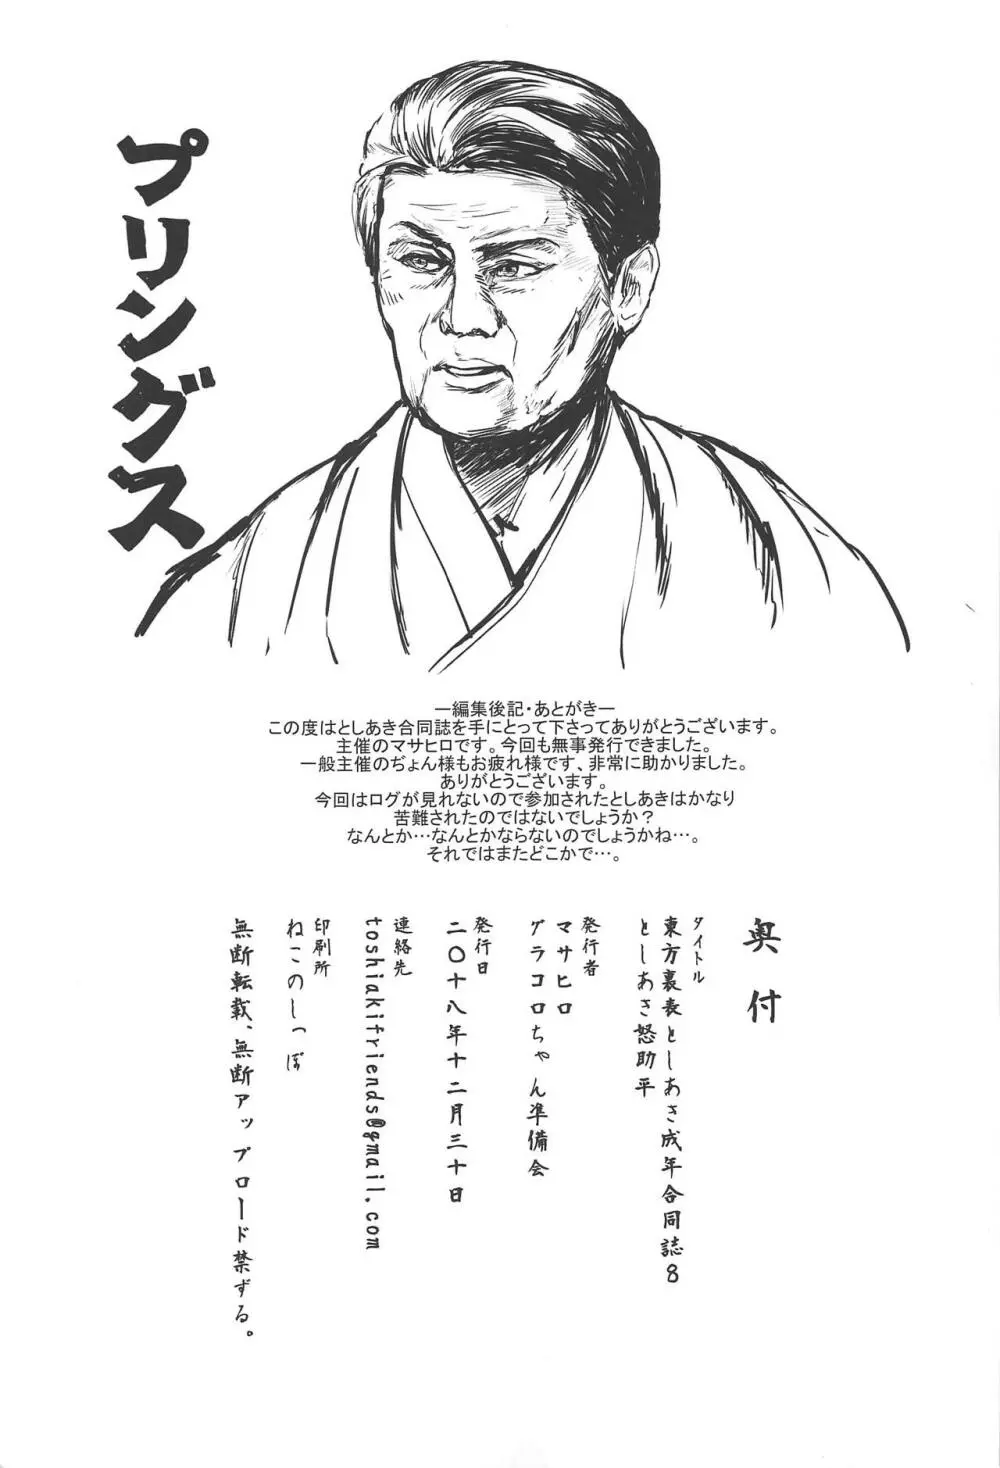 プリングス
―編集後記・あとがき―
この度はとしあき合同誌を手にとって下さってありがとうございます。
主催のマサヒロです。今回も無事発行できました。
一般主催のぢょん様もお疲れ様です、非常に助かりました。
ありがとうございます。
今回はログが見れないので参加されたとしあきはかなり
苦難されたのではないでしょうか？
なんとか…なんとかならないのでしょうかね…。
それではまたどこかで…。
奥付
タイトル
東方裏表としあき成年合同誌8
としあき怒助平
発行者
マサヒロ
グラコロちゃん準備会
発行日
二〇十八年十二月三十日
連絡先
toshiakifriends@gmail.com
印刷所
ねこのしっぽ
無断転載、無断アップロード禁ずる。